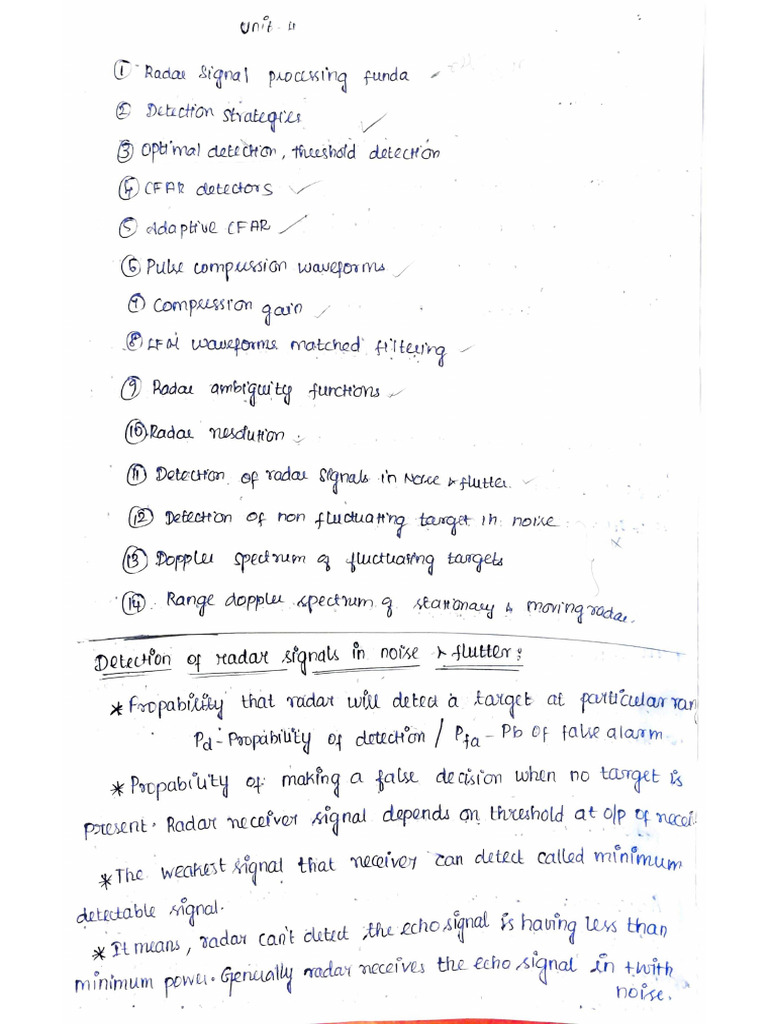 Unit - 4
① Radar Signal processing funda
② Detection strategies
③ Optimal detection, threshold detection
④ CFAR detectors
⑤ Adaptive CFAR
⑥ Pulse compression waveforms
⑦ Compression gain
⑧ LFM waveforms matched filtering
⑨ Radar ambiguity functions
⑩ Radar resolution
⑪ Detection of radar signals in Noise & flutter.
⑫ Detection of non fluctuating target in noise
⑬ Doppler spectrum of fluctuating targets
⑭ Range doppler spectrum of stationary & moving radar.
Detection of radar signals in noise & flutter:
* Propability that radar will detect a target at particular ran
Pd - Propability of detection / Pfa - Pb of false alarm.
* Propability of making a false decision when no target is
present. Radar receiver signal depends on threshold at o/p of recei
* The weakest signal that receiver can detect called minimum
detectable signal.
* It means, radar can't detect the echo signal is having less than
minimum power. Generally radar receives the echo signal in + with
noise.